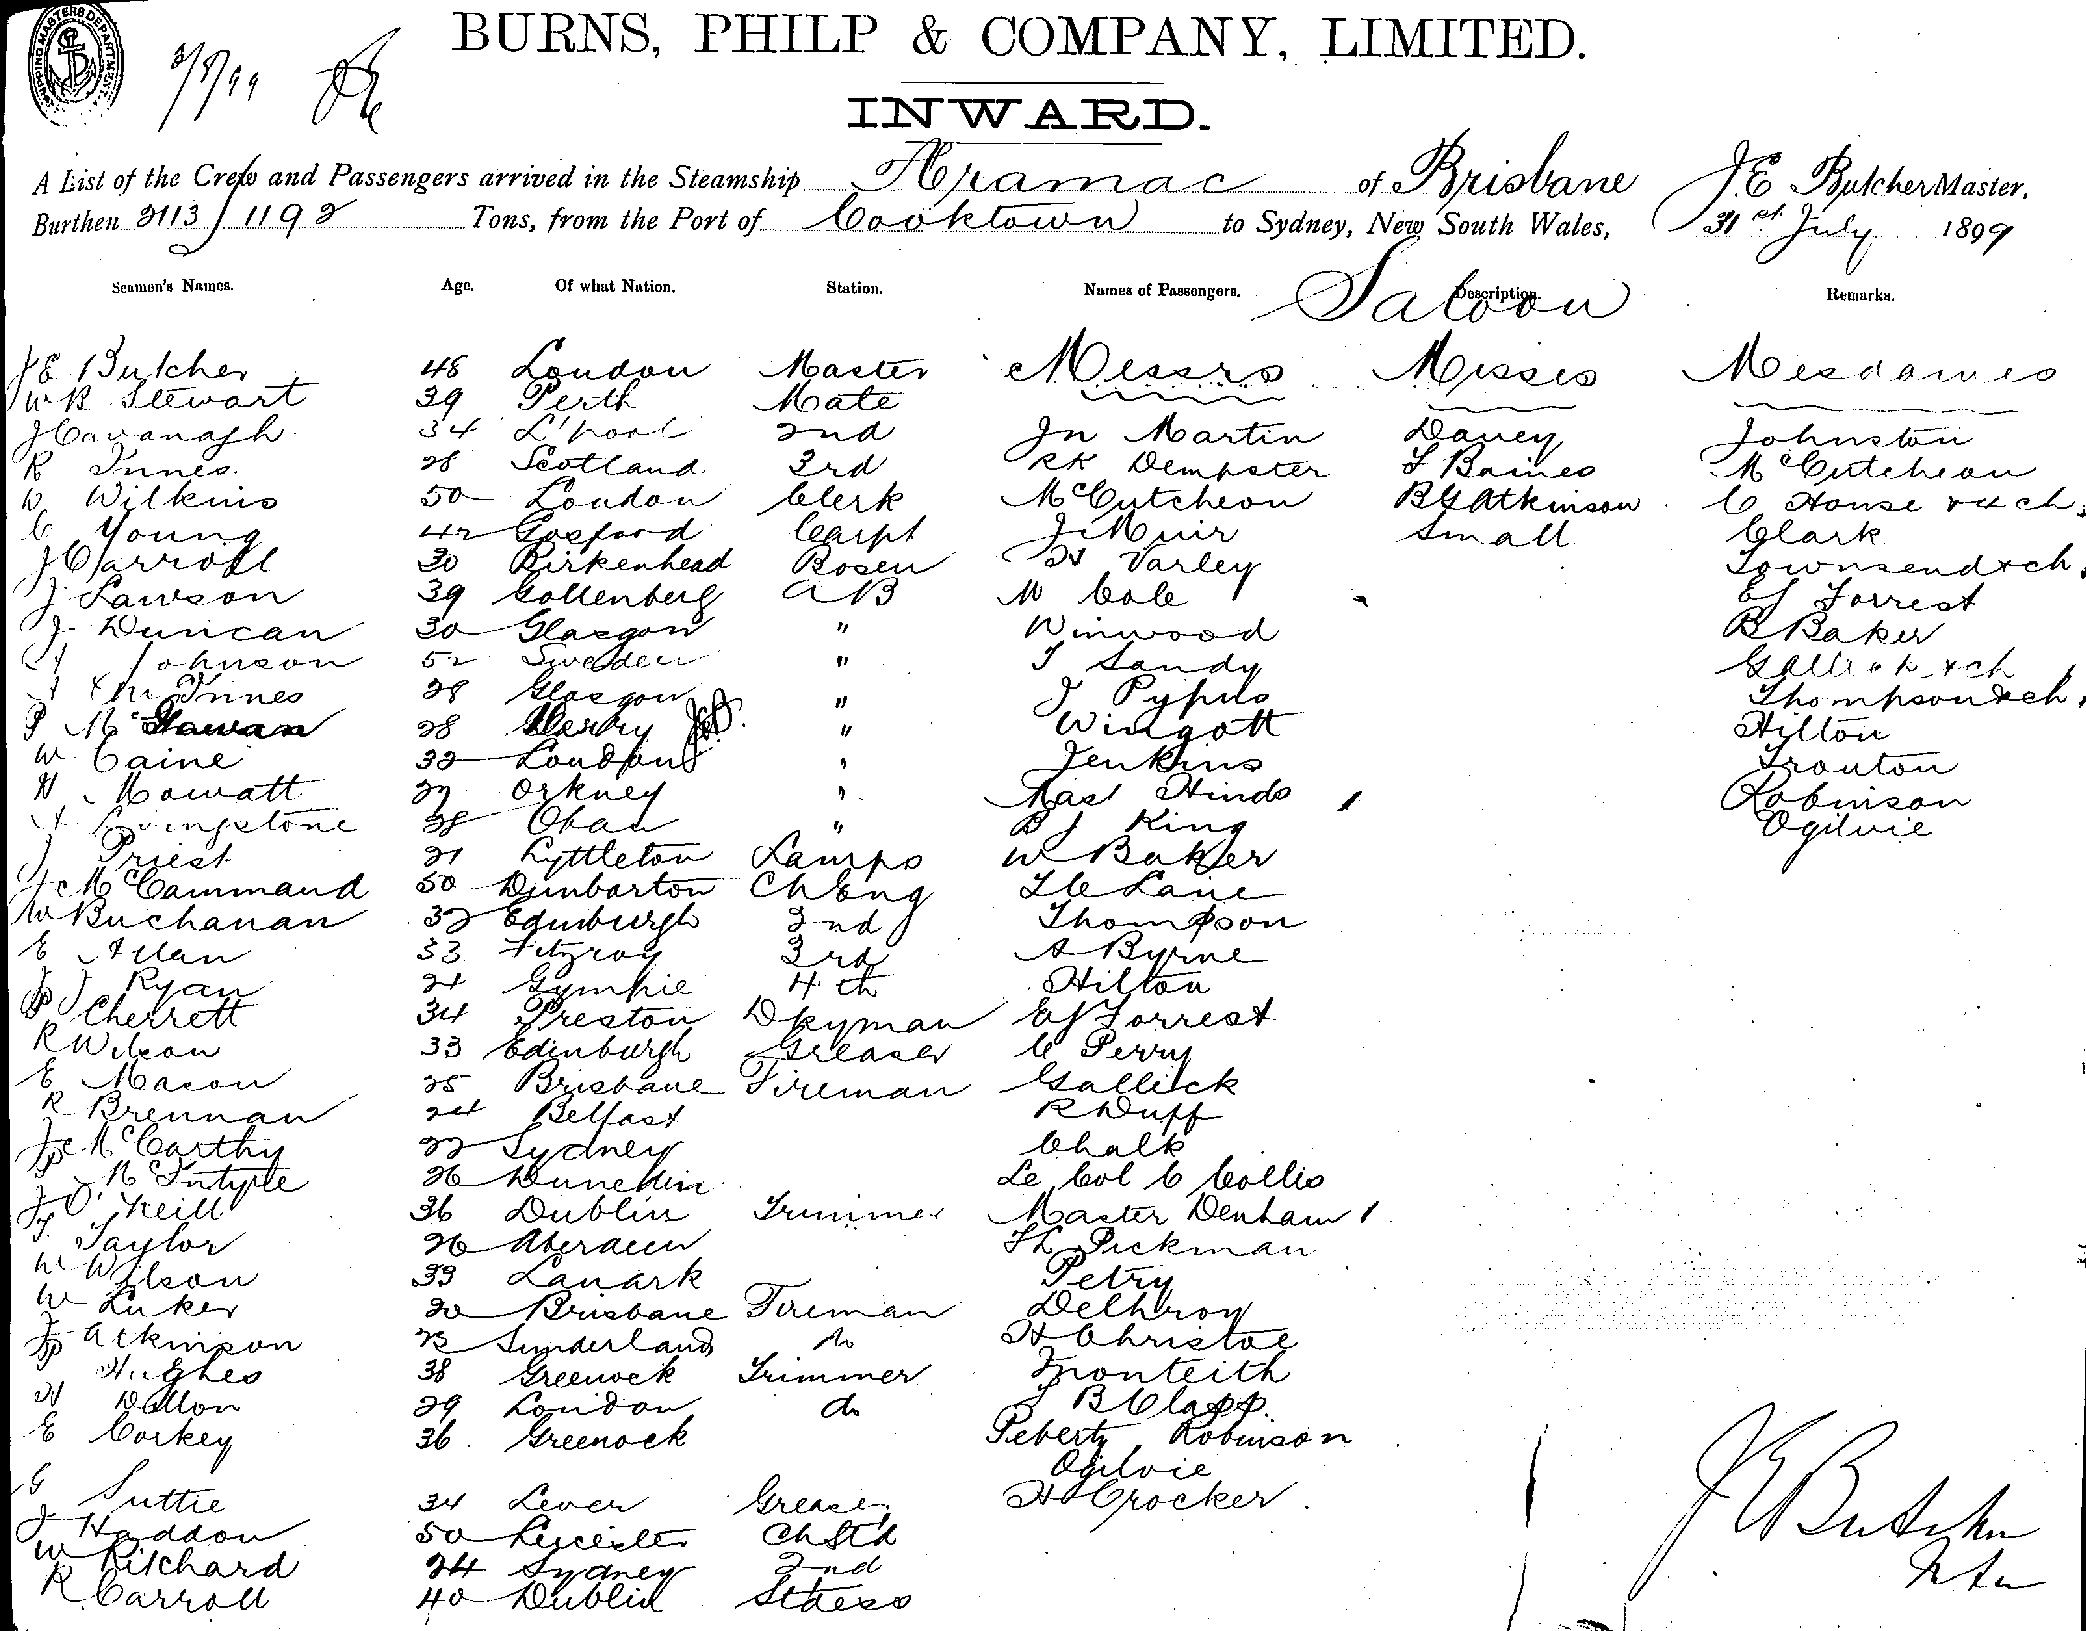 SHIPPING MASTERS DEPARTMENT
BURNS, PHILP & COMPANY, LIMITED.
INWARD.
A List of the Crew and Passengers arrived in the Steamship Aramac of Brisbane J E Butcher Master.
Burthen 2113/1192 Tons, from the Port of Cooktown to Sydney, New South Wales, 31st July 1899
Seamen's Names. Age. Of what Nation. Station. Names of Passengers. Description. Remarks.
Saloon
J E Butcher 48 London Master Messrs Misses Mesdames
W B Stewart 39 Perth Mate
J Cavanagh 34 L'pool 2nd Jn Martin Davey Johnston
R Innes 28 Scotland 3rd R K Dempster F Baines McCutcheon
W Wilkins 50 London Clerk McCutcheon B G Atkinson C House & ch.
C Young 42 Gosford Carpt J Muir Small Clark
J Carroll 30 Birkenhead Bosen H Varley Townsend & ch.
J Lawson 39 Gottenberg AB M Cole E J Forrest
J Duncan 30 Glasgow " Winwood B Baker
Johnson 52 Sweden " T Sandy & ch
McInnes 28 Glasgow " J Thompson & ch.
P 28 Derry " Wingott Hilton
W Caine 32 London " Jenkins Trouton
H Mowatt 27 Orkney " Mast Hinds Robinson
Livingstone 28 Oban " B J King Ogilvie
J Priest 21 Lyttleton Lamps W Baker
McCammand 50 Dunbarton Ch Eng Lane
W Buchanan 32 Edinburgh 2nd Thompson
E Allan 33 Fitzroy 3rd A Byrne
J Ryan 24 Gympie 4th Hilton
P Cherrett 34 Preston Dkyman E J Forrest
R Wilson 33 Edinburgh Greaser C Perry
E Mason 25 Brisbane Fireman Gallick
R Brennan 24 Belfast R Duff
J McCarthy 22 Sydney Chalk
McIntyre 26 Dunedin Le Col C Collis
J O'Neill 36 Dublin Trimmer Master Denham 1
T Taylor 26 Aberdeen Pickman
W Wilson 33 Lanark Petry
W Luker 20 Brisbane Fireman
J Atkinson 23 Sunderland do H Christoe
Hughes 38 Greenock Trimmer Monteith
H Dillon 29 London do J B Clapp.
E Corkey 36 Greenock Peberty Robinson
Ogilvie
G Suttie 34 Lever Greaser H Crocker
J Haddon 50 Leicester Ch Std
W Pitchard 24 Sydney 2nd
R Carroll 40 Dublin Stdess
J E Butcher